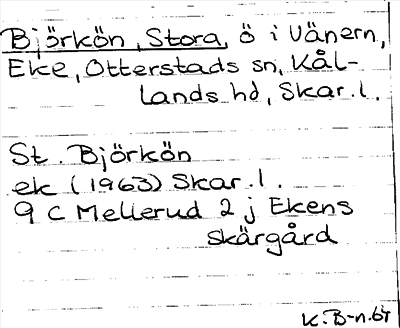 Björkön, Stora, ö i Vänern,
Eke, Otterstads sn, Kål-
lands hd, Skar. l.
St. Björkön
ek (1963) Skar. l.
9 C Mellerud 2 j Ekens
skärgård
K. B-n. 67